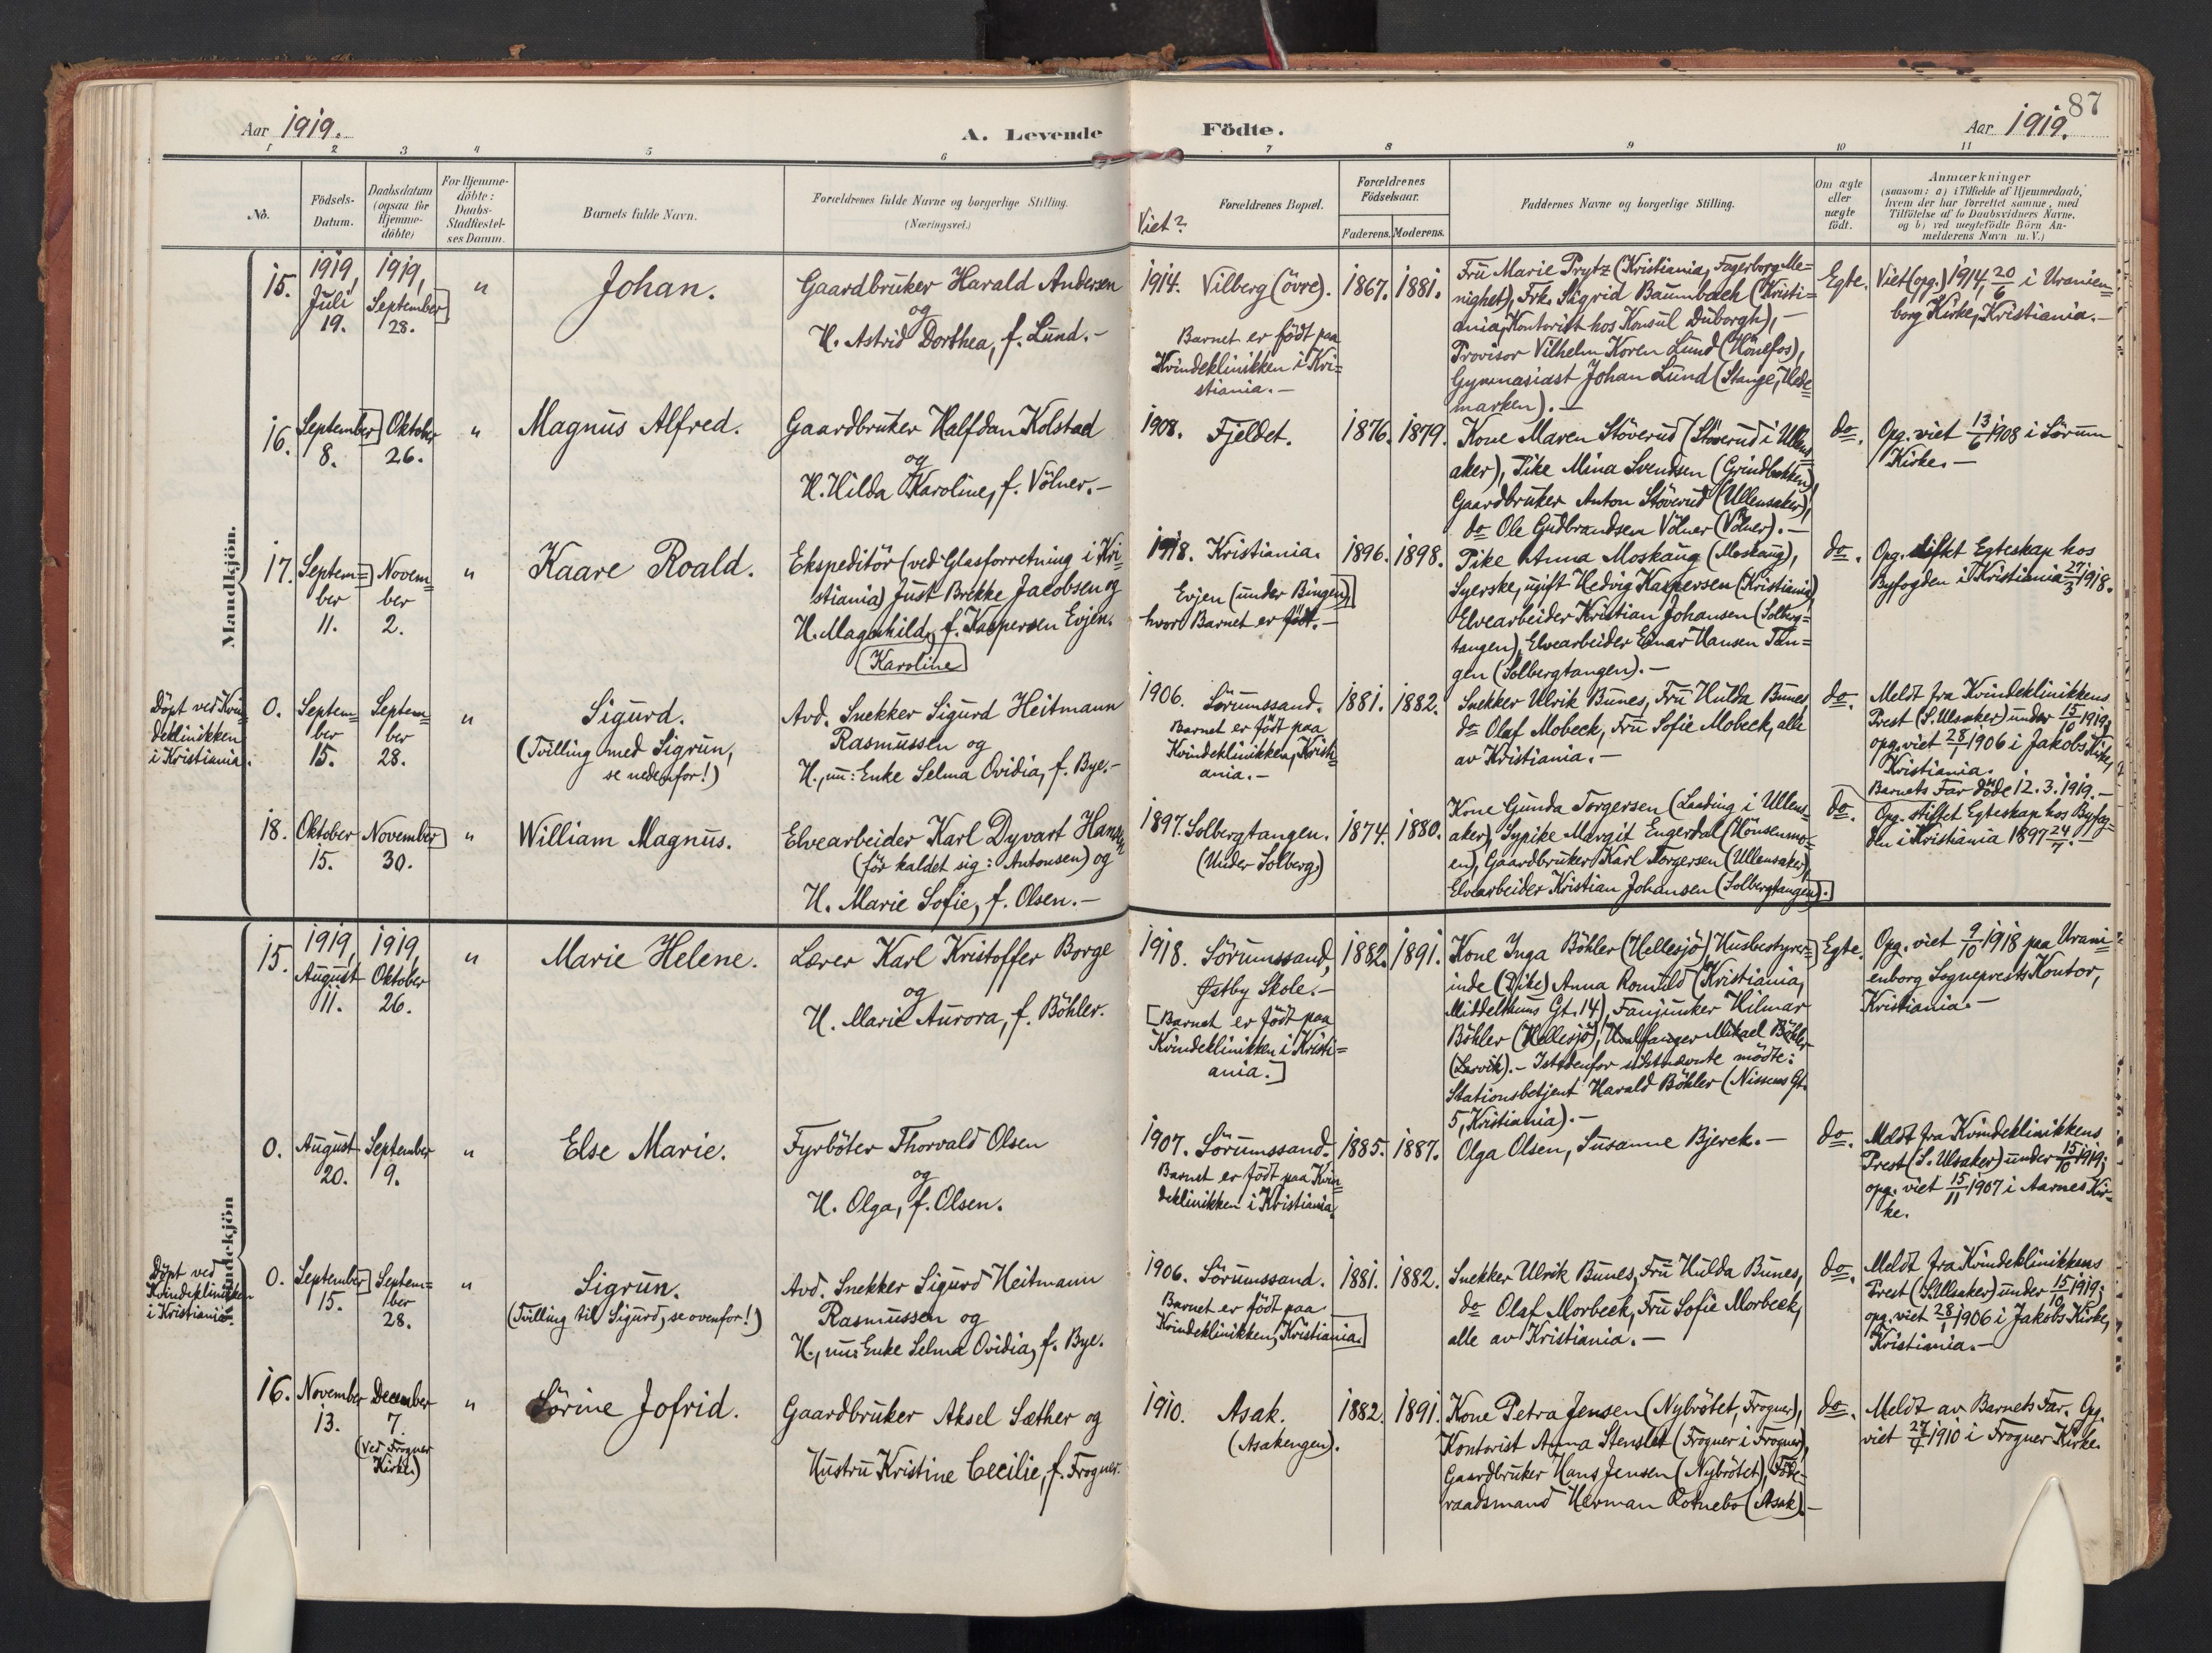 87
Aar 1919.
A. Levende Födte.
Aar 1919.
1 2 3 4 5 6 7 8 9 10 11
No.
Födsels-
Datum.
Daabsdatum
(ogsaa for
Hjemme-
döbte)
For Hjemme-
döbte:
Daabs-
Stadfestel-
ses Datum.
Barnets fulde Navn.
Forældrenes fulde Navne og borgerlige Stilling.
(Næringsvei.)
Viet?
Forældrenes Bopæl.
Forældrenes
Födselsaar.
Faderens. Moderens.
Faddernes Navne og borgerlige Stilling.
Om ægte
eller
uægte
födt.
Anmærkninger
(saasom: a) i Tilfælde af Hjemmedaab,
hvem der har forrettet samme, med
Tilföielse af to Daabsvidners Navne.
og b) ved uægtefödte Börn An-
melderens Navn m. V.)
Mandkjön.
15.
1919,
Juli
19.
1919,
September
28.
"
Johan.
Gaardbruker Harald Andersen
og
H. Astrid Dorthea, f. Lund.-
1914. Vilberg (övre).
Barnet er födt paa
Kvindeklinikken i Kri=
stiania.-
1867. 1881.
Fru Marie Prytz (Kristiania, Fagerborg Me-
nighet), Frk. Sigrid Baumbach (Kristi=
ania, Kontorist hos Konsul Duborgh),-
Provisor Vilhelm Koren Lund (Hönefos),
Gymnasiast Johan Lund (Stange, Hede=
marken).-
Egte.
Viet (opg.) 1914 20/6 i Uranien=
borg Kirke, Kristiania.-
16.
September
8.
Oktober
26.
"
Magnus Alfred.
Gaardbruker Halfdan Kolstad
og
H. Hilda Karoline, f. Völner.-
1908. Fjeldet.
1876. 1879.
Kone Maren Stöverud (Stöverud i Ullens=
aker), Pike Mina Svendsen (Grindbakken),
Gaardbruker Anton Stöverud (Ullensaker),
do Ole Gudbrandsen Völner (Völner).-
do.
Opg. viet 13/6 1908 i Sörum
Kirke.-
17.
Septem=
ber
11.
Novem=
ber
2.
"
Kaare Roald.
Ekspeditör (ved Glasforretning i Kri=
stiania) Just Brekke Jacobsen og
H. Magnhild, f. Kaspersen Evjen.
Karoline
1918. Kristiania.
Evjen (under Bingen),
hvor Barnet er födt.-
1896. 1898.
Pike Anna Moskaug (Moskaug),
Syerske, ugift Hedvig Kaspersen (Kristiania)
Elvearbeider Kristian Johansen (Solberg=
tangen), Elvearbeider Einar Hansen Tan=
gen (Solbergtangen).-
do.
Opg. stiftet Egteskap hos
Byfogden i Kristiania 27/3 1918.
Döpt ved Kvin=
deklinikken
i Kristiania.
0.
Septem=
ber
15.
Septem=
ber
28.
"
Sigurd.
(Tvilling med Sigrun,
se nedenfor!)
Avd. Snekker Sigurd Heitmann
Rasmussen og
H., nu: Enke Selma Ovidia, f. Bye.-
1906. Sörumssand.
Barnet er födt paa
Kvindeklinikken, Kristi=
ania.-
1881. 1882.
Snekker Ulrik Bunes, Fru Hulda Bunes,
do Olaf Mobeck, Fru Sofie Mobeck, alle
av Kristiania.-
do.
Meldt fra Kvindeklinikkens
Prest (S. Ulsaker) under 15/10 1919;
opg. viet 28/1 1906 i Jakobs Kirke,
Kristiania.
Barnets Far döde 12.3.1919.-
18.
Oktober
15.
November
30.
"
William Magnus.
Elvearbeider Karl Dyvart Hansen
(för kaldet sig: Antonsen) og
H. Marie Sofie, f. Olsen.-
1897. Solbergtangen.
(Under Solberg)
1874. 1880.
Kone Gunda Torgersen (Laading i Ullens=
aker), Sypike Margit Engerdal (Hönsenmo=
en), Gaardbruker Karl Torgersen (Ullensaker),
Elvearbeider Kristian Johansen (Solbergtangen).
do.
Opg. stiftet Egteskap hos Byfog=
den i Kristiania 1897 24/11.-
Kvindekjön
15.
1919,
August
11.
1919,
Oktober
26.
"
Marie Helene.
Lærer Karl Kristoffer Borge
og
H. Marie Aurora, f. Böhler.
1918. Sörumssand,
Østby Skole.-
[Barnet er födt paa
Kvindeklinikken i Kristi=
ania.]
1882. 1891.
Kone Inga Böhler (Hellesjö), Husbestyrer=
inde (Pike) Anna Romuld (Kristiania,
Middelthuns Gt. 14), Fanjunker Hilmar
Böhler (Hellesjö), Hvalfanger Mikael Böhler
(Larvik).- Istedenfor sidstnævnte mödte:
Stationsbetjent Harald Böhler (Nissens Gt.
5, Kristiania).-
Egte.
Opg. viet 9/10 1918 paa Urani=
enborg Sogneprests Kontor,
Kristiania.-
0.
August
20.
September
9.
"
Else Marie.
Fyrböter Thorvald Olsen
og
H. Olga, f. Olsen.
1907. Sörumssand.
Barnet er födt paa Kvin=
deklinikken i Kristiania.
1885. 1887.
Olga Olsen, Susanne Bjerck.-
do.
Meldt fra Kvindeklinikkens
Prest (S. Ulsaker) under 15/10 1919;
opg. viet 15/11 1907 i Aarnes Kir=
ke.
Döpt ved
Kvindeklinikken
i Kristiania.
0.
September
15.
Septem=
ber
28.
"
Sigrun.
(Tvilling til Sigurd, se ovenfor!)
Avd. Snekker Sigurd Heitmann
Rasmussen og
H., nu: Enke Selma Ovidia, f. Bye.
1906. Sörumssand.
Barnet er födt paa
Kvindeklinikken, Kristiania.
1881. 1882.
Snekker Ulrik Bunes, Fru Hulda Bunes,
do Olaf Morbeck, Fru Sofie Morbeck,
alle av Kristiania.-
do.
Meldt fra Kvindeklinikkens
Prest (S. Ulsaker) under 15/10 1919;
opg. viet 28/1 1906 i Jakobs Kirke,
Kristiania.-
16.
November
13.
December
7.
(ved Frogner
Kirke.)
"
Sörine Jofrid.
Gaardbruker Aksel Sæther og
Hustru Kristine Cecilie, f. Frogner.
1910. Asak.
(Asakengen).
1882. 1891.
Kone Petra Jensen (Nybrötet, Frogner),
Kontorist Anna Stenslet (Frogner i Frogner),
Gaardbruker Hans Jensen (Nybrötet), Föde-
raadsmand Herman Rotnebo (Asak).-
do.
Meldt av Barnets Far. Opg.
viet 27/4 1910 i Frogner Kirke.